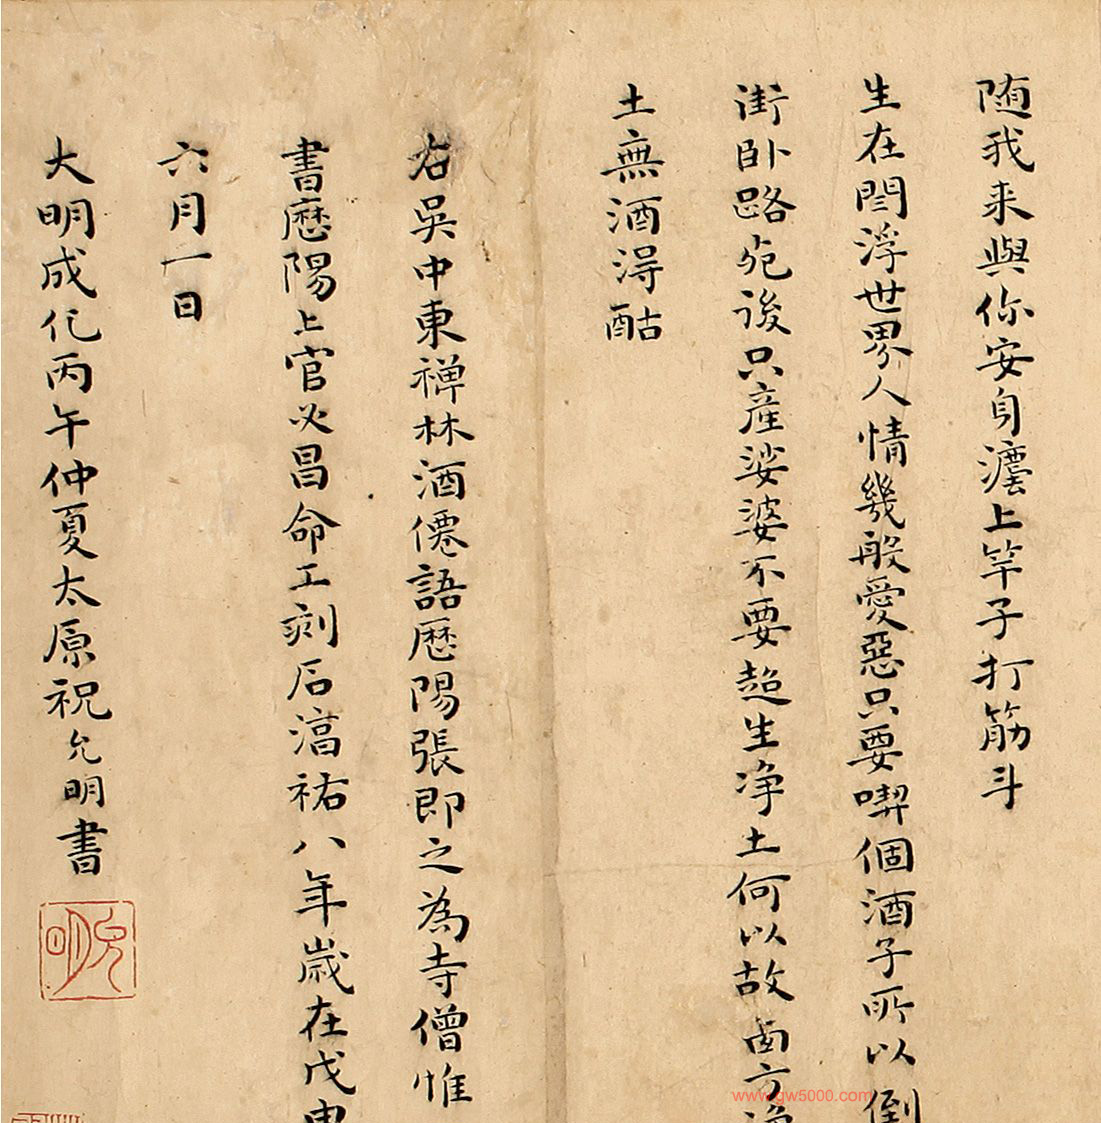 随我来與你安身瀍上竿子打筋斗
生在閻浮世界人情幾般愛惡只要喫個酒子所以倒
街卧路死後只產娑婆不要超生净土何以故西方净
土無酒得酤
右吳中東禅林酒僊語歷陽張即之為寺僧惟
書歷陽上官必昌命工刻石淳祐八年歲在戊申
六月一日
大明成化丙午仲夏太原祝允明書
允明
www.gw5000.com